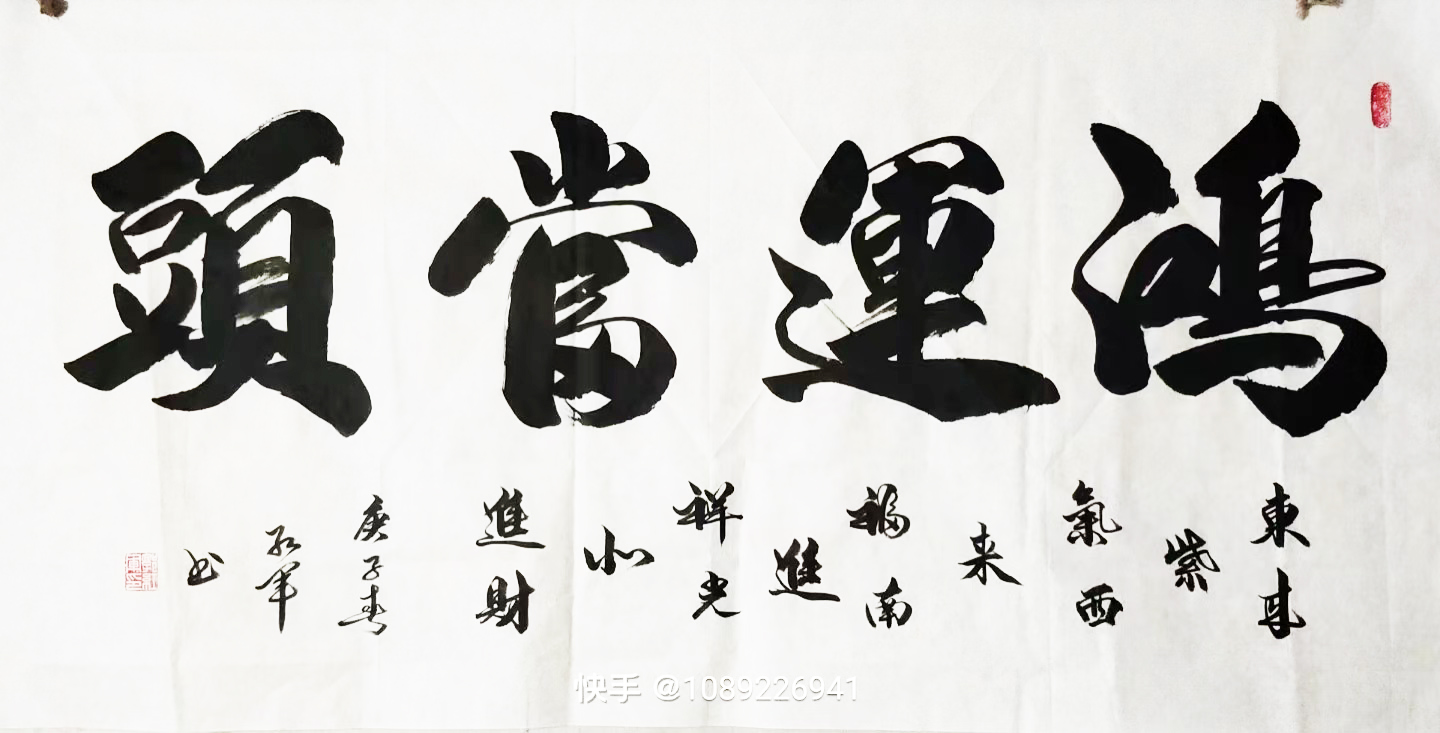 鴻運當頭
東来紫氣西来福南進祥光北進財
庚子春
紅軍
书
快手 @1089226941